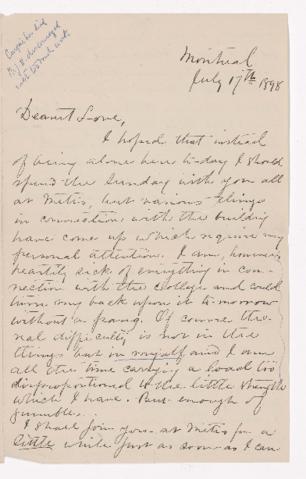 Montreal
July 17th 1898
Dearest Love,
I hoped that instead
of being alone here to-day I should
spend the Sunday with you all
at Metis, but various things
in connection with the building
have come up which require my
personal attention. I am, however
heartily sick of everything in con-
nection with the College and could
turn my back upon it to-morrow
without a pang. Of course the
real difficulty is not in the
things but in myself and I am
all the time carrying a load too
disproportional to the little strength
which I have. But enough of
grumble.
I shall join you at Metis for a
little while just as soon as I can